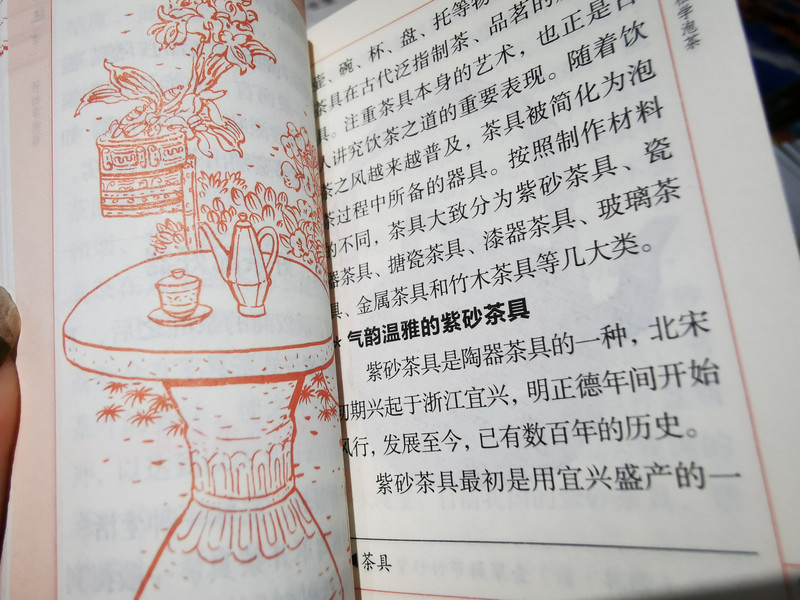 学泡茶
壶、碗、杯、盘、托等物
茶具在古代泛指制茶、品茗的
具。注重茶具本身的艺术，也正是古
人讲究饮茶之道的重要表现。随着饮
茶之风越来越普及，茶具被简化为泡
茶过程中所备的器具。按照制作材料
的不同，茶具大致分为紫砂茶具、瓷
器茶具、搪瓷茶具、漆器茶具、玻璃茶
具、金属茶具和竹木茶具等几大类。
气韵温雅的紫砂茶具
紫砂茶具是陶器茶具的一种，北宋
初期兴起于浙江宜兴，明正德年间开始
风行，发展至今，已有数百年的历史。
紫砂茶具最初是用宜兴盛产的一
茶具